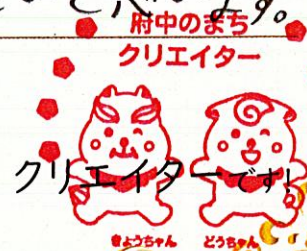 す。
府中のまち
クリエイター
クリエイターです!
きょうちゃん どうちゃん